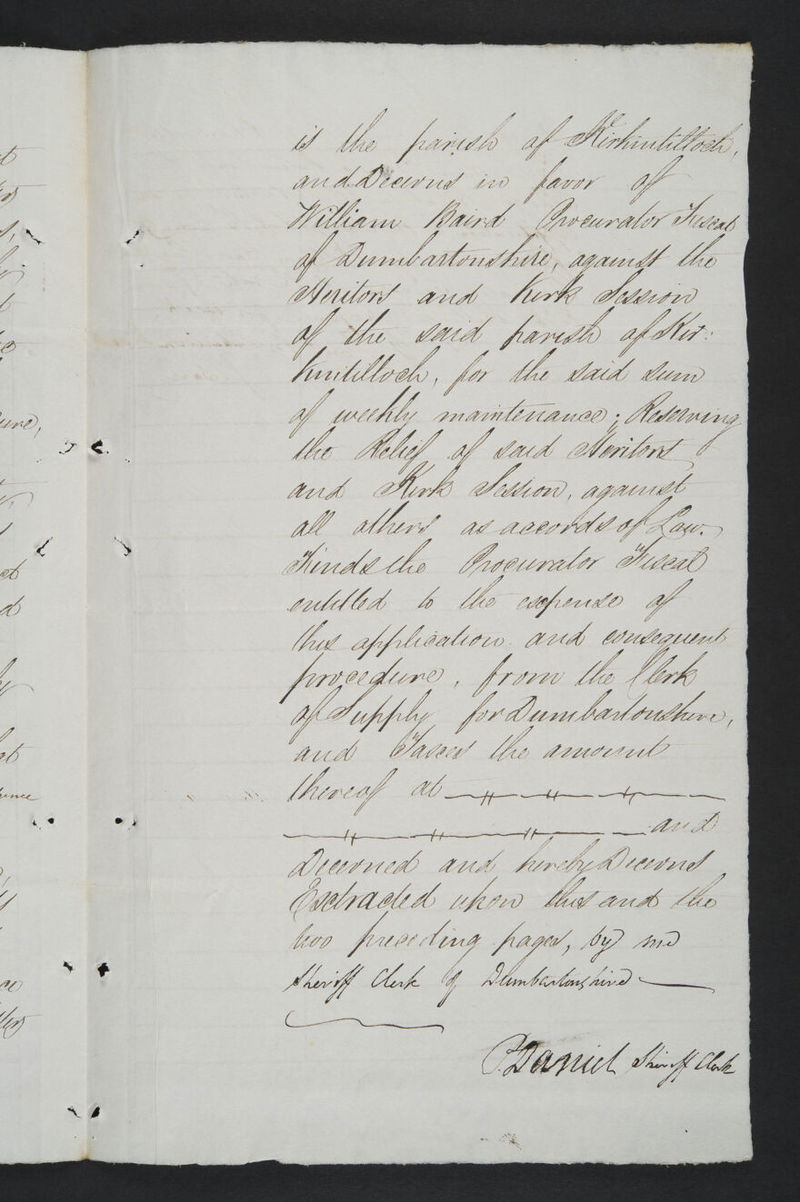 is the parish of Kirkintilloch,
and Decerns in favor of
William Baird Procurator Fiscal
of Dumbartonshire, against the
Heritors and Kirk Session
of the said parish of Kir:
kintilloch, for the said sum
of weekly maintenance; Reserving
the Relief of said Heritors
and Kirk Session, against
all others as accords of Law.
Finds the Procurator Fiscal
entitled to the expense of
this application and consequent
procedure, from the Clerk
of Supply for Dumbartonshire,
and Taxes the amount
thereof at
and
Decerned and hereby Decerns
Extracted upon this and the
two preceding pages, by me
Sheriff Clerk of Dumbartonshire
P. Daniel Sheriff Clerk